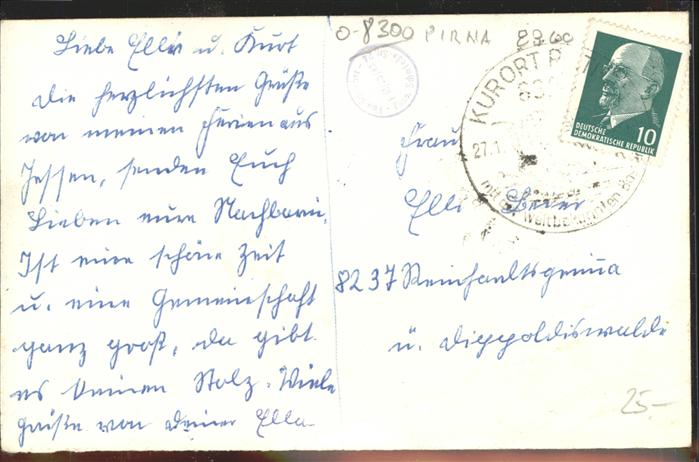 Liebe Elli u. Kurt
Die herzlichsten Grüße
von meinen Ferien aus
Jessen, senden Euch
Lieben eure Nachbarin,
Ist eine schöne Zeit
u. eine Gemeinschaft
ganz groß, da gibt
es keinen Stolz. Viele
Grüße von deiner Ella
0-8300 PIRNA
KURORT
27.1
weltbekannten
DEUTSCHE
DEMOKRATISCHE REPUBLIK
10
Frau
Elli
8237 Reinhardtsgrimma
ü. Dippoldiswalde
25.-